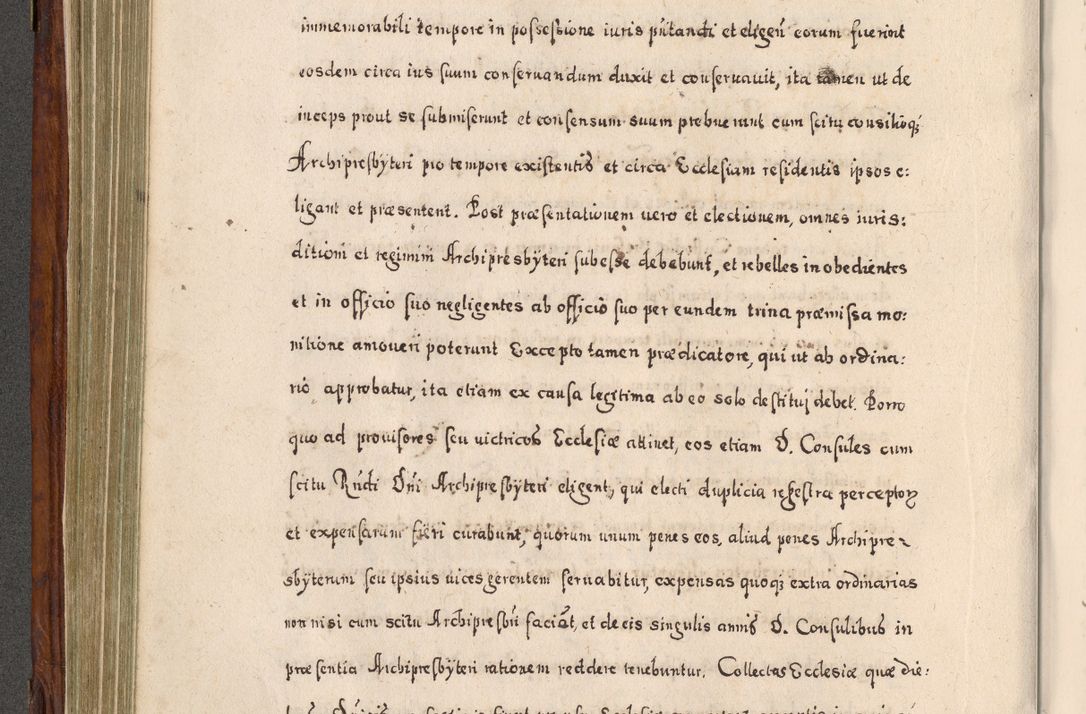 immemorabili tempore in possessione iuris pñtandi et eligeñ eorum fuerint
eosdem circa ius suum conseruandum duxit et conseruauit, ita tamen ut de
inceps prout se submiserunt et consensum suum prebuerunt cum scitu consilioq꜕
Archipresbÿteri pro tempore existentis et circa Ecclesiam residentis ipsos e:
ligant et præsentent. Post præsentationem uero et electionem, omnes iuris:
ditioni et regimini Archipresbÿteri subesse debebunt, et rebelles inobedientes
et in officio suo negligentes ab officio suo per eundem trina præmissa mo:
nitione amoueri poterunt Excepto tamen prædicatore, qui ut ab ordina:
rio approbatur, ita etiam ex causa legitima ab eo solo destituj debet. Porro
quo ad prouisores seu uictricos Ecclesiæ attinet, eos etiam D. Consules cum
scitu Rndi Dñi Archipresbÿteri eligent, qui electi duplicia regestra perceptoꝝ
et expensarum fieri curabunt, quorum unum penes eos, aliud penes Archipre-
sbÿterum seu ipsius uices gerentem seruabitur, expensas quoq꜕ extra ordinarias
non nisi cum scitu Archipresbñ faciãt, et de eis singulis annis D. Consulibus in
præsentia Archipresbÿteri rationem reddere tenebuntur. Collectas Ecclesiæ quæ die: